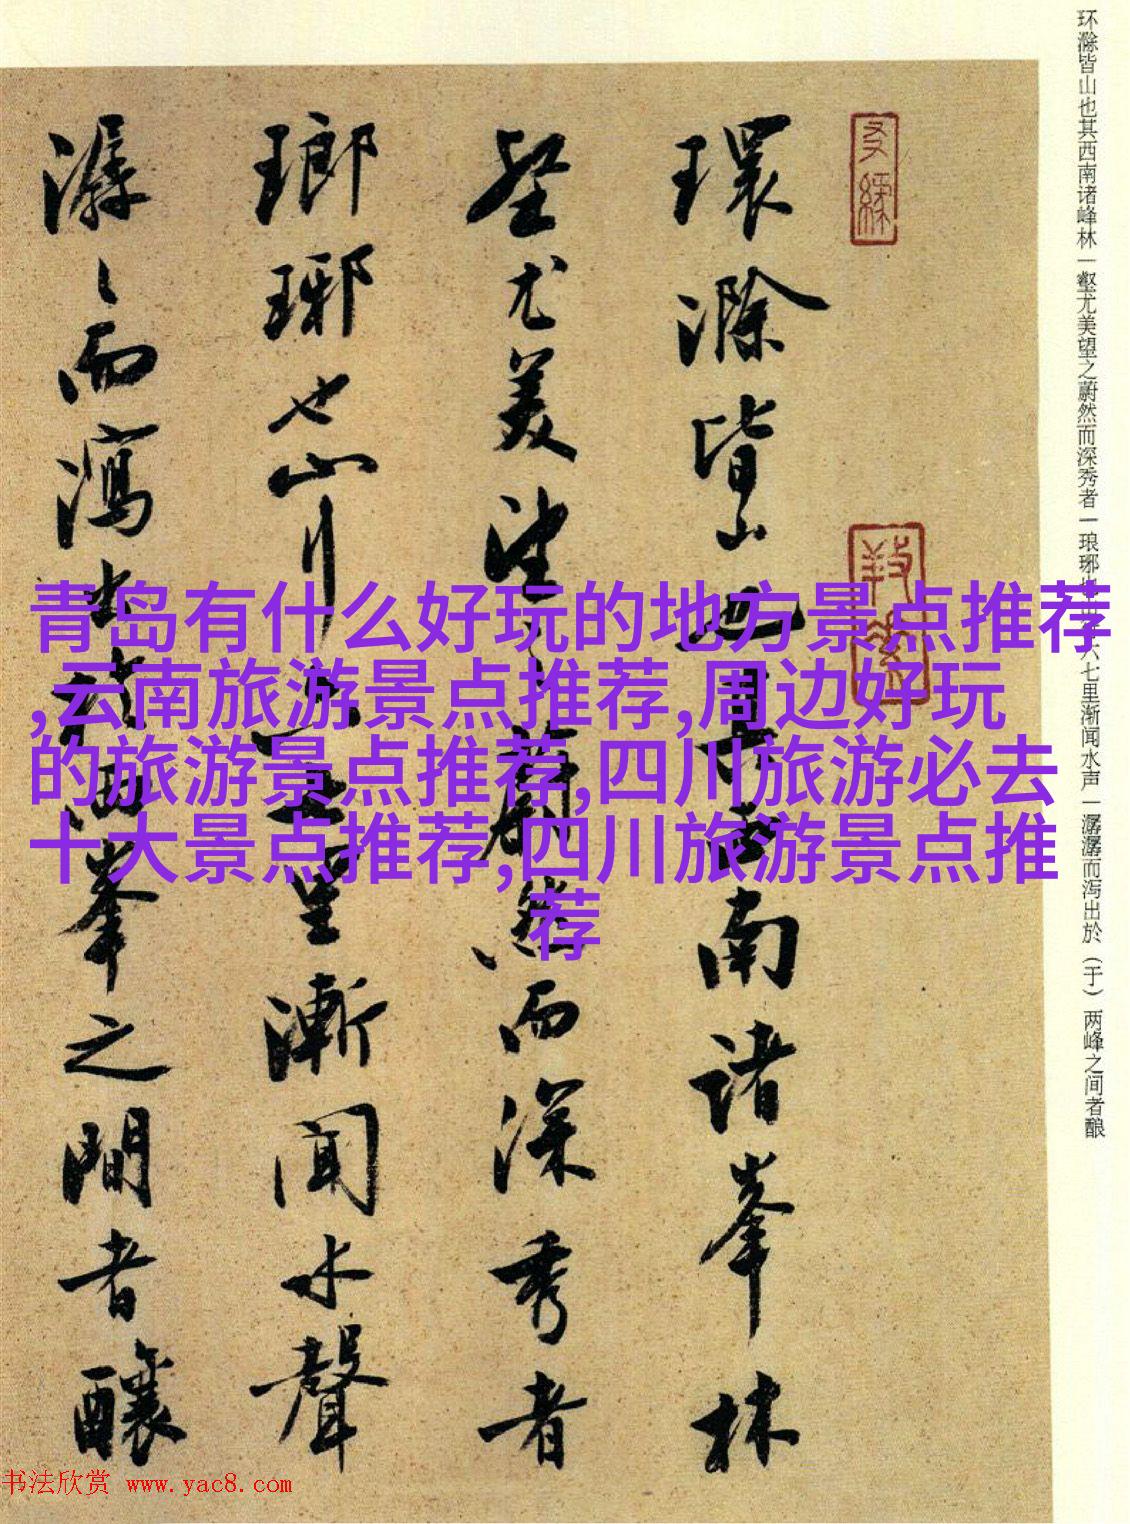 环滁皆山也其西南诸峰林一壑尤美望之蔚然而深秀者一琅琊也山行六七里渐闻水声一潺潺而泻出於（于）两峰之间者酿
環滁皆山也其西南诸峯林
壑尤美望之蔚然而深秀者
瑯琊也山行六七里漸闻水聲
潺〻而瀉出于两峯之間者釀
青岛有什么好玩的地方景点推荐
,云南旅游景点推荐,周边好玩
的旅游景点推荐,四川旅游必去
十大景点推荐,四川旅游景点推
荐
书法欣赏 www.yac8.com